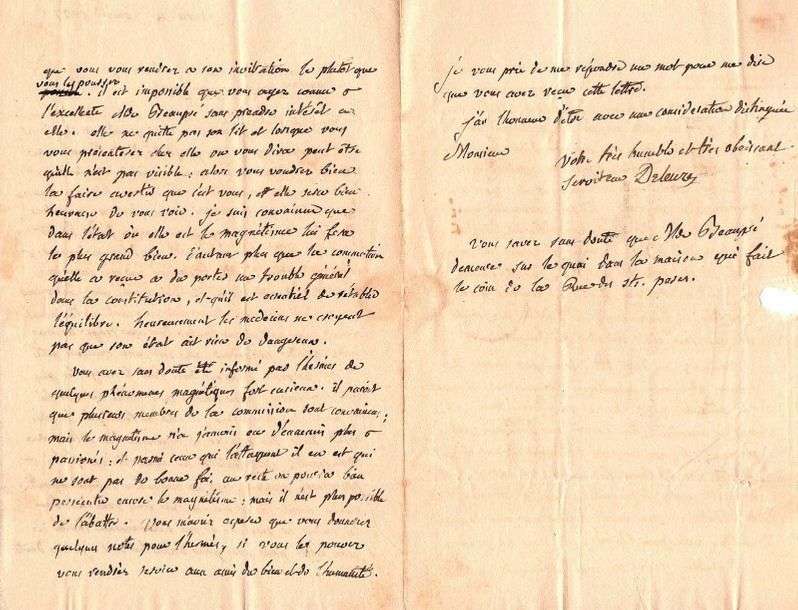 que vous vous rendrez a son invitation le plutôt que
vous les pousser
possible. il est impossible que vous ayez connu
l'excellente Mde Beaupré sans prendre intérêt a
elle. elle ne quitte pas son lit et lorsque vous
vous présenterez chez elle on vous dira peut être
qu'elle n'est pas visible: alors vous voudrez bien
la faire avertir que c'est vous, et elle sera bien
heureuse de vous voir. je suis convaincu que
dans l'état ou elle est le magnétisme lui fera
le plus grand bien. d'autant plus que la commotion
qu'elle a reçue a du porter un trouble général
dans la constitution, et qu'il est essentiel de rétablir
l'équilibre. heureusement les medecins ne croyent
pas que son état ait rien de dangereux.
vous avez sans doute été informé par l'hermès de
quelques phénomènes magnétiques fort curieux. il paroit
que plusieurs membres de la commission sont convaincus;
mais le magnétisme n'a jamais eu d'ennemis plus
passionés: et parmi ceux qui l'attaquent il en est qui
ne sont pas de bonne foi. au reste on pourra bien
persécuter encore le magnétisme: mais il n'est plus possible
de l'abattre. vous m'aviez espérer que vous donneriez
quelques notes pour l'hermès, si vous le pouvez
vous rendrez service aux amis du bien et de l'humanité.
je vous prie de me répondre un mot pour me dire
que vous avez reçu cette lettre.
j'ai l'honneur d'être avec une consideration distinguée
Monsieur
votre très humble et très obeissant
serviteur Deleuze
vous savez sans doute que Mde Beaupré
demeure sur le quai dans la maison qui fait
le coin de la Rue des sts. peres.